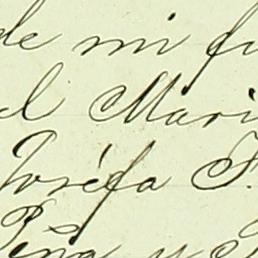 de mi fu
el Mari
Josefa F.
Peña y